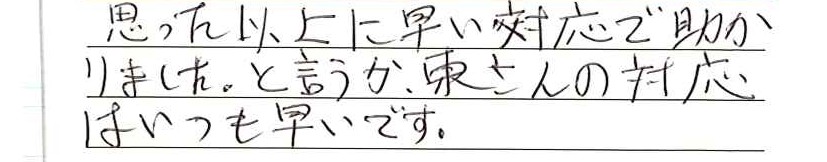 思った以上に早い対応で助か
りました。と言うか、東さんの対応
はいつも早いです。